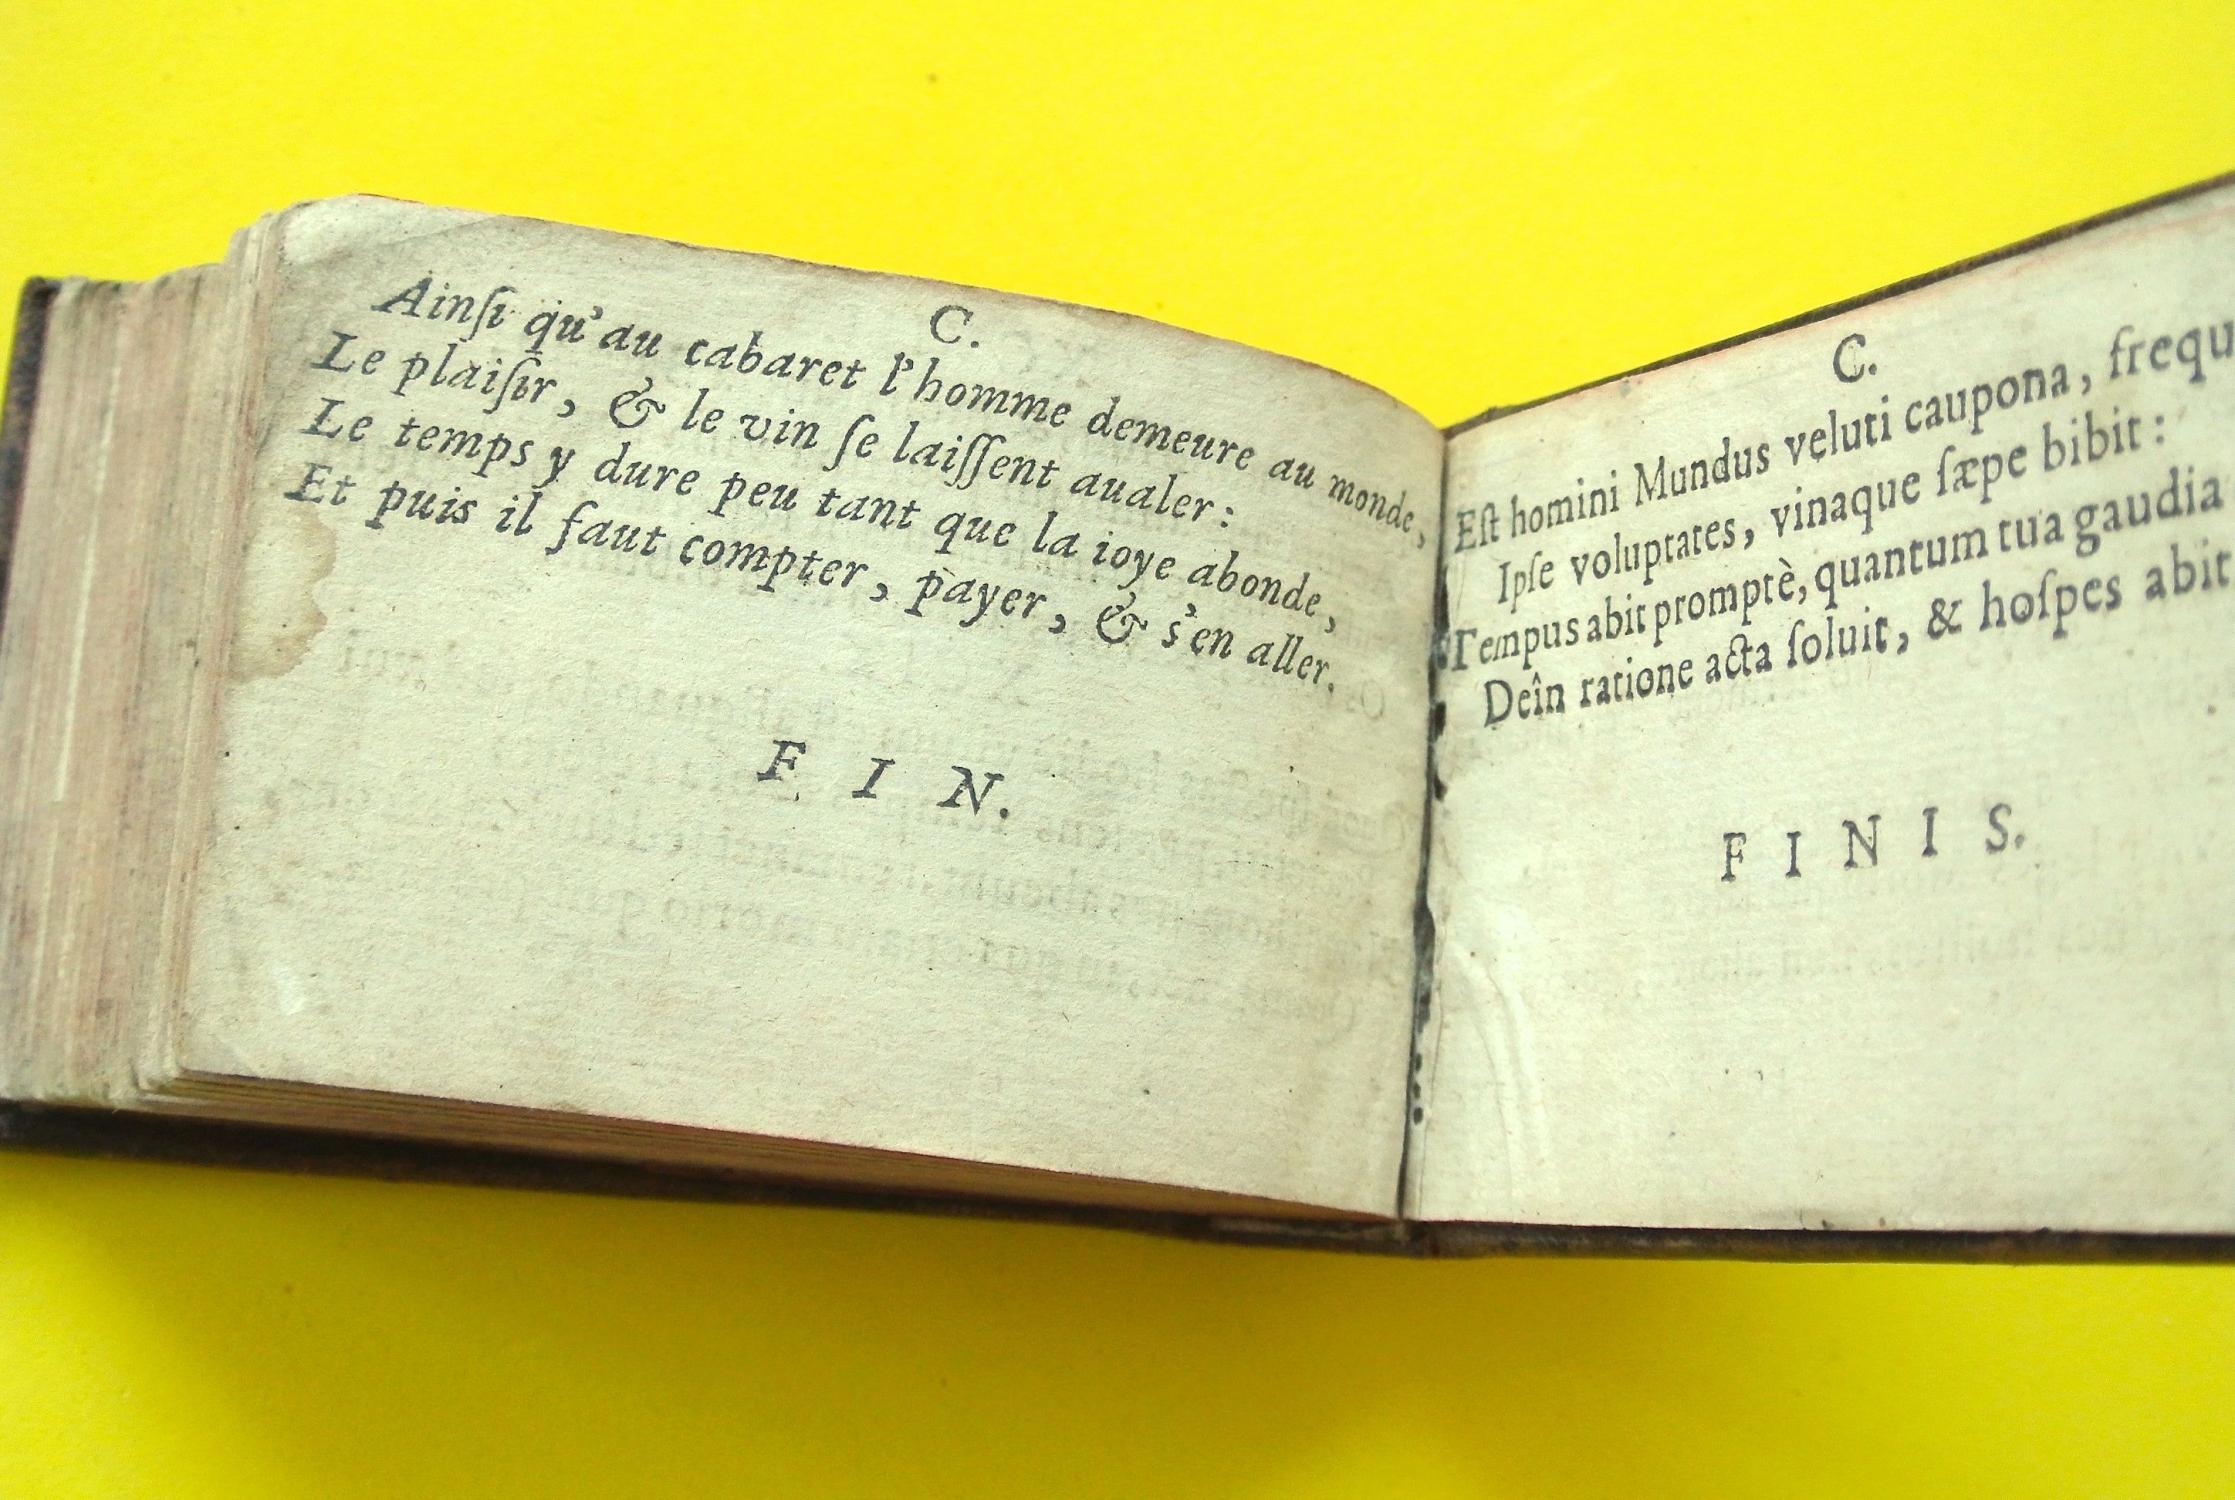 C.
Ainſi qu'au cabaret l'homme demeure au monde,
Le plaiſir, & le vin ſe laiſſent aualer:
Le temps y dure peu tant que la ioye abonde,
Et puis il faut compter, payer, & s'en aller.
F I N.
C.
Eſt homini Mundus veluti caupona, frequ
Ipſe voluptates, vinaque ſæpe bibit:
Tempus abit promptè, quantum tua gaudia
Deîn ratione acta ſoluit, & hoſpes abit
F I N I S.